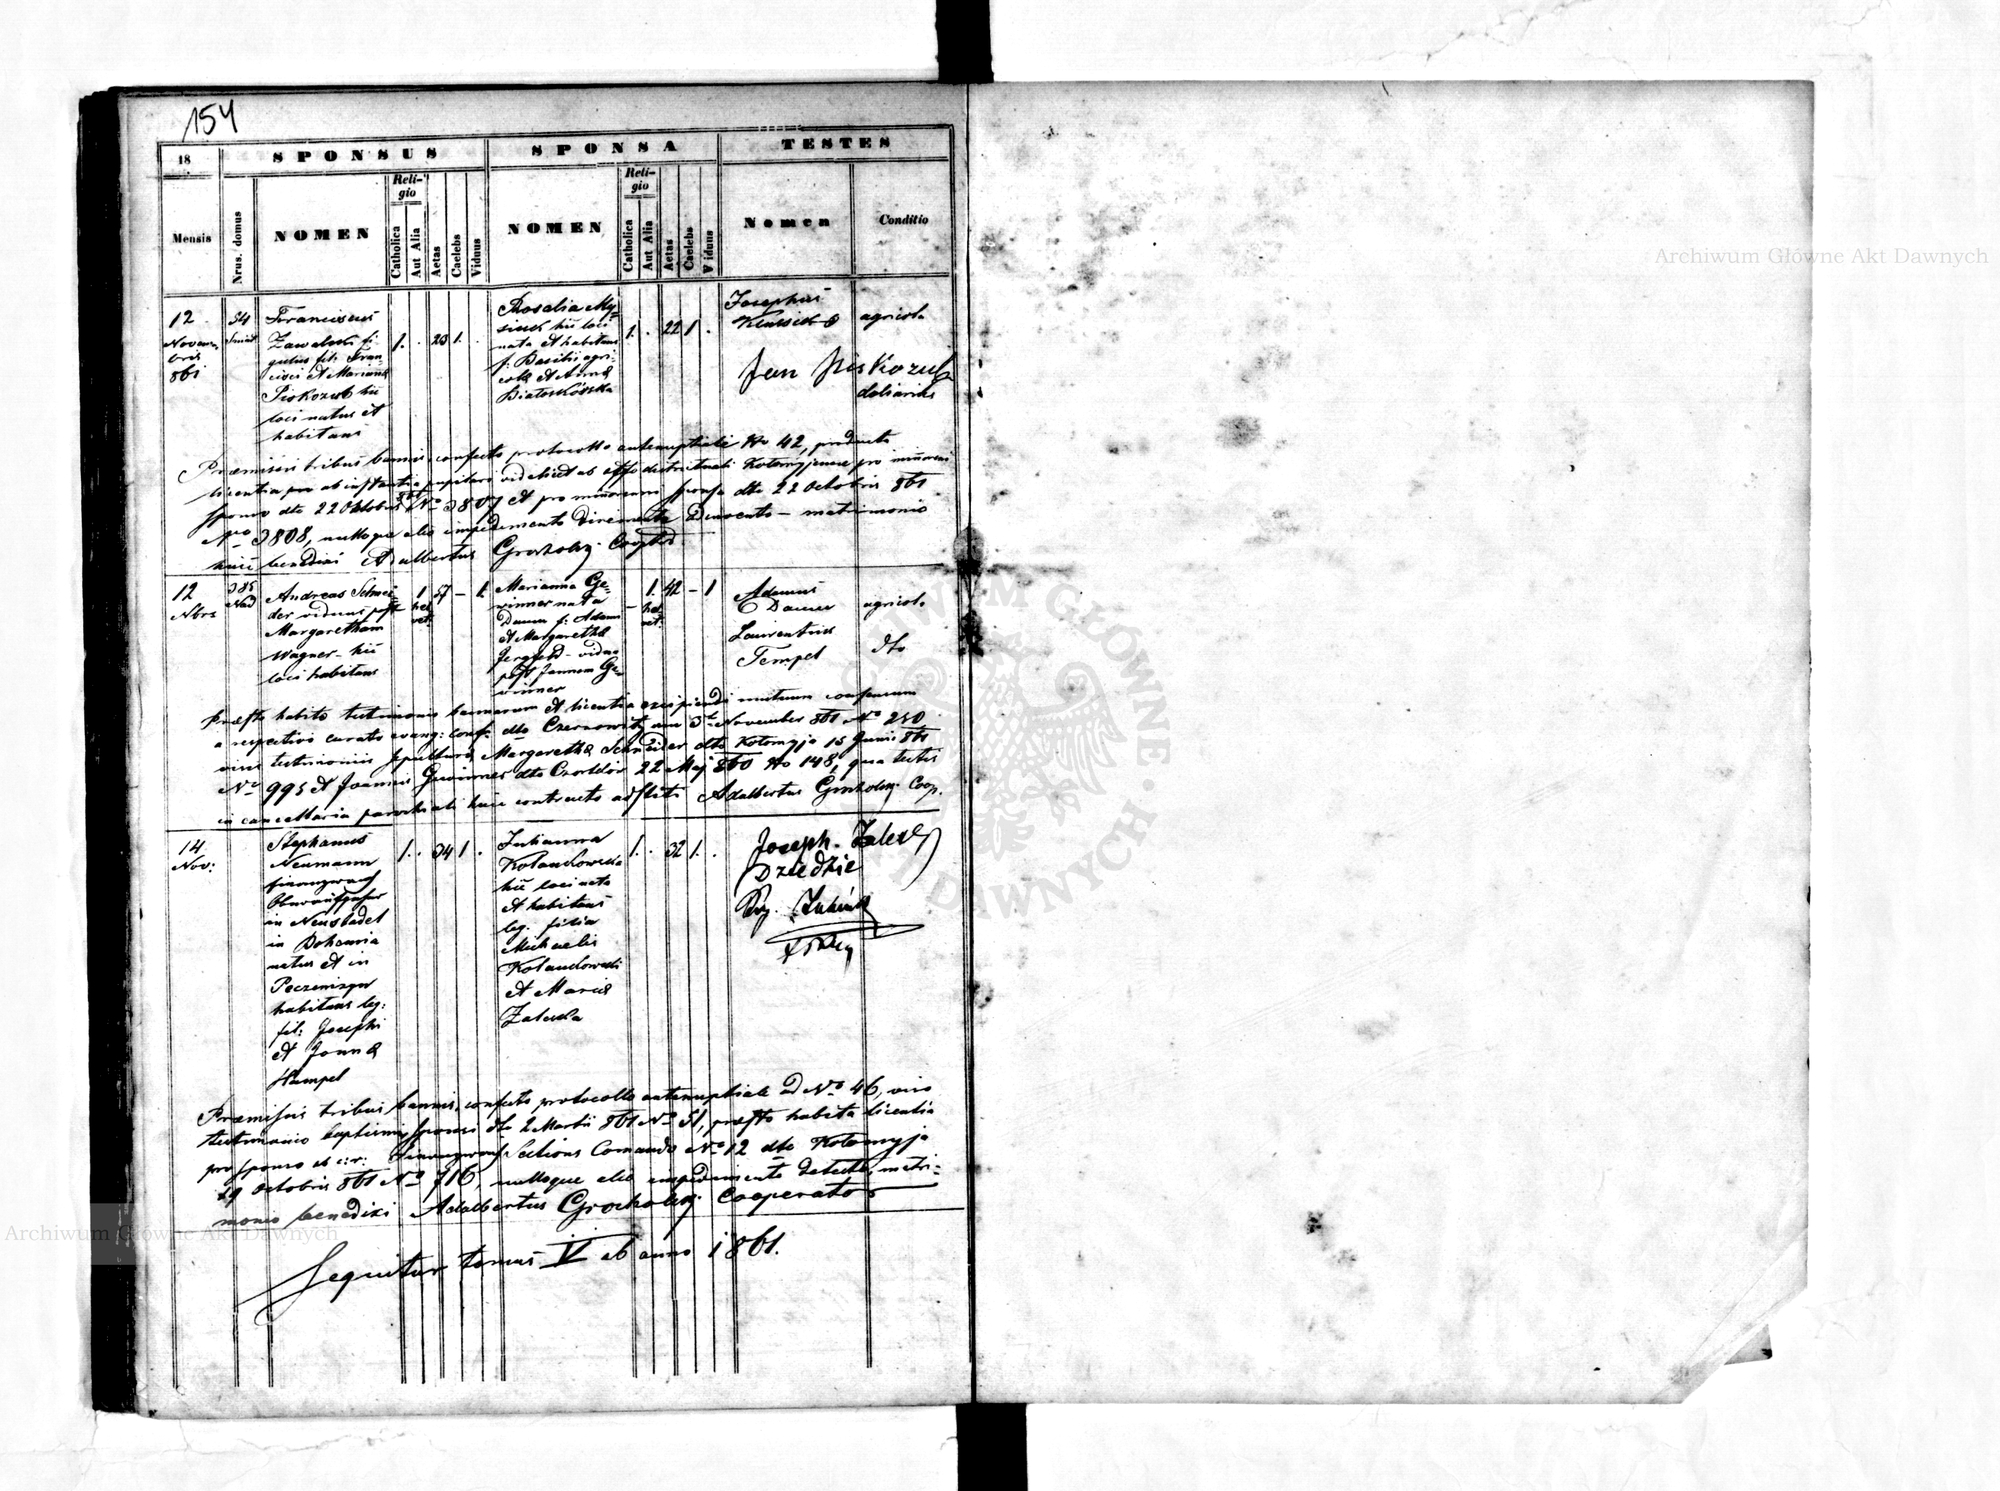 154
18
SPONSUS
SPONSA
TESTES
Mensis
Nrus. domus
NOMEN
Religio
Catholica
Aut Alia
Aetas
Caelebs
Viduus
NOMEN
Religio
Catholica
Aut Alia
Aetas
Caelebs
Viduus
Nomen
Conditio
12
Novem
bris
861
54
Franciscus
Zawalski fi-
gulus fil: Fran-
cisci et Mariannæ
Piskozub hic
loci natus et
habitans
1. . 23 1. .
Rosalia My-
siuk hic loci
nata et habitans
f: Basilii agri-
colæ et Annæ
Białoskórska
1. . 22 1 .
Josephus
agricola
Jan Piskozub
doliarius
Præmissis tribus bannis, confecto protocollo antenuptiali No 42, producta
licentia pro ab instantia pupillari videlicet ab offo districtuali Kolomyjense pro minoreni
sponso dto 22 Octobris 861 No 3807 et pro minorenni sponsa dto 22 Octobris 861
Nro 3808, nulloque alio impedimento dirimente detecto – matrimonio
huic benedixi Adalbertus Grocholsky Cooptor
12
Nbris
385
Andreas Schnei-
der viduus post
Margaretham
Wagner – hic
loci habitans
1
hel
vet:
57 – 1.
Marianna Ge-
winner nata
Daum f: Adami
et Margarethæ
vidua
post Joannem Ge-
winner
– 1.
hel
vet:
42 – 1
Adamus
Daum
agricola
Laurentius
Tempel
dto
Præsto habito testimonio bannorum et licentia excipiendi mutuum consensum
a respectivo curato evang: conf: dto Czernowitz am 3te November 861 No 250
visis testimoniis sepulturæ Margarethæ Schneider dto Kolomyja 15 Junii 861
No 995 et Joannis Gewinner dto 22 Maj 860 No 148, qua testis
in cancellaria parochiali huic contractui adstiti Adalbertus Grocholsky Coop.
14
Nov:
Stephanus
Neumann
finanzwach
Oberaufseher
in Neustadel
in Bohemia
natus et in
Peczeniżyn
habitans leg:
fil: Josephi
et Joannæ
Hampel
1. . 34 1 .
Julianna
Kolandowska
hic loci nata
et habitans
leg. filia
Michaelis
Kolandowski
et Mariæ
Zaleska
1. . 32 1. .
Joseph. Zaleski
Dziedzic
Præmissis tribus bannis, confecto protocollo antenuptiali ad No 46, viso
testimonio baptismi sponsi dto 2 Martii 861 No 51, præsto habita licentia
pro sponso ab c: r: Finanzwach Sections Comando No 12 dto Kolomyja
29 Octobris 861 No 716, nulloque alio impedimento detecto, matri-
monio benedixi Adalbertus Grocholsky Cooperator
Sequitur tomus IV ab anno 1861.
Archiwum Główne Akt Dawnych
Archiwum Główne Akt Dawnych
ARCHIWUM GŁÓWNE AKT DAWNYCH